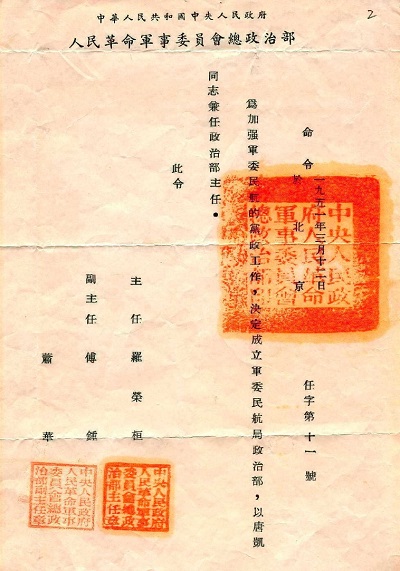 2
中華人民共和國中央人民政府
人民革命軍事委員會總政治部
命令
任字第十一號
一九五一年三月十二日
於北京
爲加强軍委民航的黨政工作，決定成立軍委民航局政治部，以唐凱
同志兼任政治部主任。
此令
主任羅榮桓
副主任傅鍾
蕭華
中央人民政
府人民革命
軍事委員會
中央人民政府
人民革命軍事
委員會總政
治部主任章
中央人民政府
人民革命軍事
委員會總政
治部副主任章